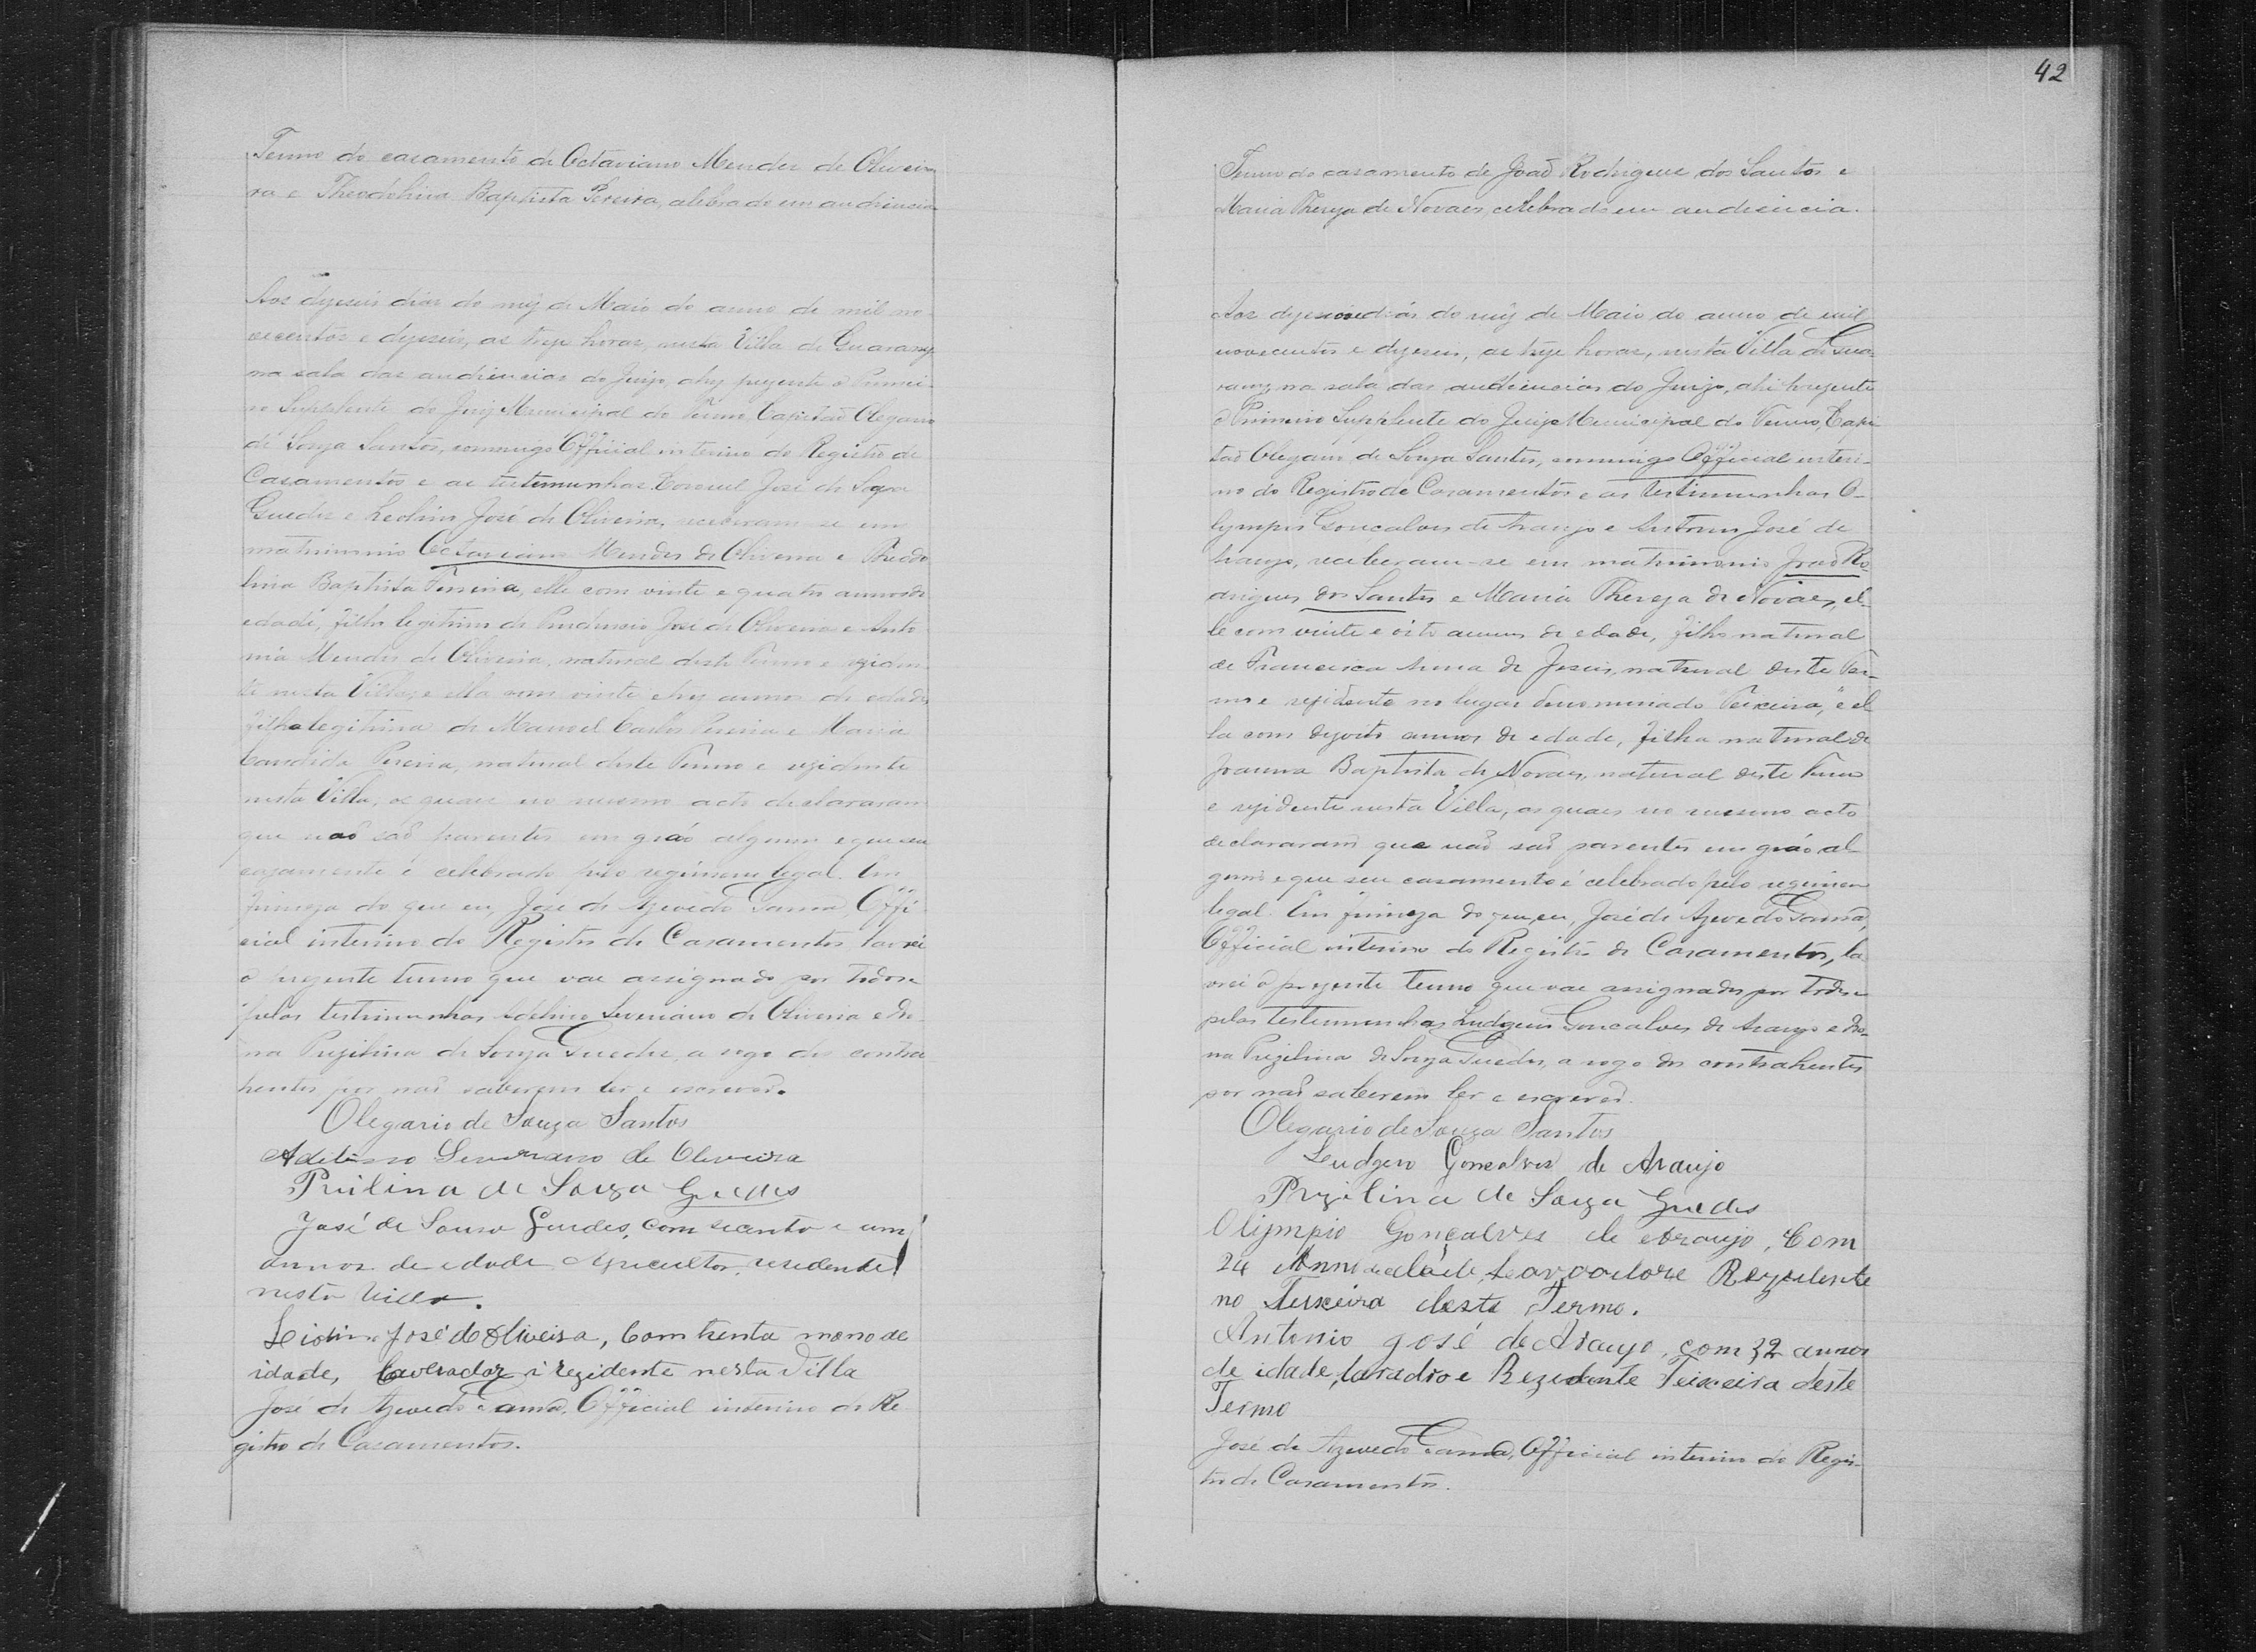 Termo do casamento de Octaviano Mendes de Olivei
ra e Theodolina Baptista Pereira, celebrado em audiencia
Aos dezeseis dias do mez de Maio do anno de mil no
vecentos e dezeseis, as treze horas, nesta Villa de Guarany
na sala das audiencias do Juizo, ahy prezente o Primei
ro Supplente do Juiz Municipal do Termo, Capitão Olegario
de Souza Santos, commigo Official interino do Registro de
Casamentos e as testemunhas Coronel José de Souza
Guedes e José de Oliveira, receberam-se em
matrimonio Octaviano Mendes de Oliveira e Theodo
lina Baptista Pereira, elle com vinte e quatro annos de
edade, filho legitimo de Prudencio José de Oliveira e Anto
nia Mendes de Oliveira, natural deste Termo e reziden
te nesta Villa, e ella com vinte e tres annos de edade,
filha legitima de Manoel Carlos Pereira e Maria
Candida Pereira, natural deste Termo e rezidente
nesta Villa, os quaes no mesmo acto declararam
que não são parentes em gráo algum e que seu
casamento é celebrado pelo regimem legal. Em
firmeza do que eu, José de Azevedo Gama, Offi
cial interino do Registro de Casamentos, lavrei
o prezente termo que vae assignado por todos e
pelas testimunhas Adelino Severiano de Oliveira e Do
na Prezilina de Souza Guedes, a rogo dos contra
hentes por não saberem ler e escrever.
Olegario de Souza Santos
Adelino Severiano de Oliveira
Prilina de Souza Guedes
José de Souza Guedes, com secenta e um
annos de edade Agricultor, residente
nesta Villa.
José de Oliveira, com trenta
idade, Laverador i rezidente nesta Villa
José de Azevedo Gama, Official interino do Re
gistro de Casamentos.
42
Termo do casamento de João Rodrigues dos Santos e
Maria Thereza de Novaes, celebrado em audiencia.
Aos dias do mez de Maio do anno de mil
novecentos e dezeseis, as treze horas, nesta Villa de Gua
rany na sala das audiencias do Juizo, ahi prezente
o Primeiro Supplente do Juiz Municipal do Termo, Capi
tão Olegario de Souza Santos, commigo Official interi-
no do Registro de Casamentos e as testimunhas O-
lympio Gonçalves de Araujo e Antonio José de
Araujo, receberam-se em matrimonio João Ro
drigues dos Santos e Maria Thereza de Novaes, el-
le com vinte e oito annos de edade, filho natural
de Francisca Anna de Jesus, natural deste Ter-
mo e rezidente no lugar denominado "Teixeira," e el
la com dezoito annos de edade, filha natural de
Joanna Baptista de Novaes, natural deste Termo
e rezidente nesta Villa, os quaes no mesmo acto
declararam que não são parentes em gráo al
gum e que seu casamento é celebrado pelo regimen
legal. Em firmeza do que eu, José de Azevedo Gama,
Official interino do Registro de Casamentos, la
vrei o prezente termo que vae assignado por todos e
pelas testemunhas Ludgero Gonçalves de Araujo e Do-
na Prezilina de Souza Guedes, a rogo dos contrahentes
por não saberem ler e escrever.
Olegario de Souza Santos
Ludgero Gonçalves de Araujo
Przilina de Souza Guedes
Olijmpio Gonçalves de Araujo, Com
24 Annos de idade, Rezidente
no Teixeira deste Termo.
Antonio José de Araujo, com 32 annos
de idade, e Rezidente Teixeira deste
Termo
José de Azevedo Gama, Official interino do Regis-
tro de Casamentos.